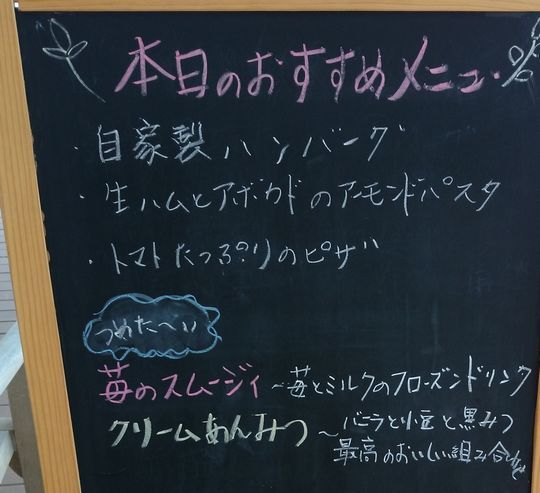 本日のおすすめメニュー
・自家製ハンバーグ
・生ハムとアボカドのアーモンドパスタ
・トマトたっぷりのピザ
つめた〜い
苺のスムージィ〜苺とミルクのフローズンドリンク
クリームあんみつ〜バニラと小豆と黒みつ
最高のおいしい組み合わせ